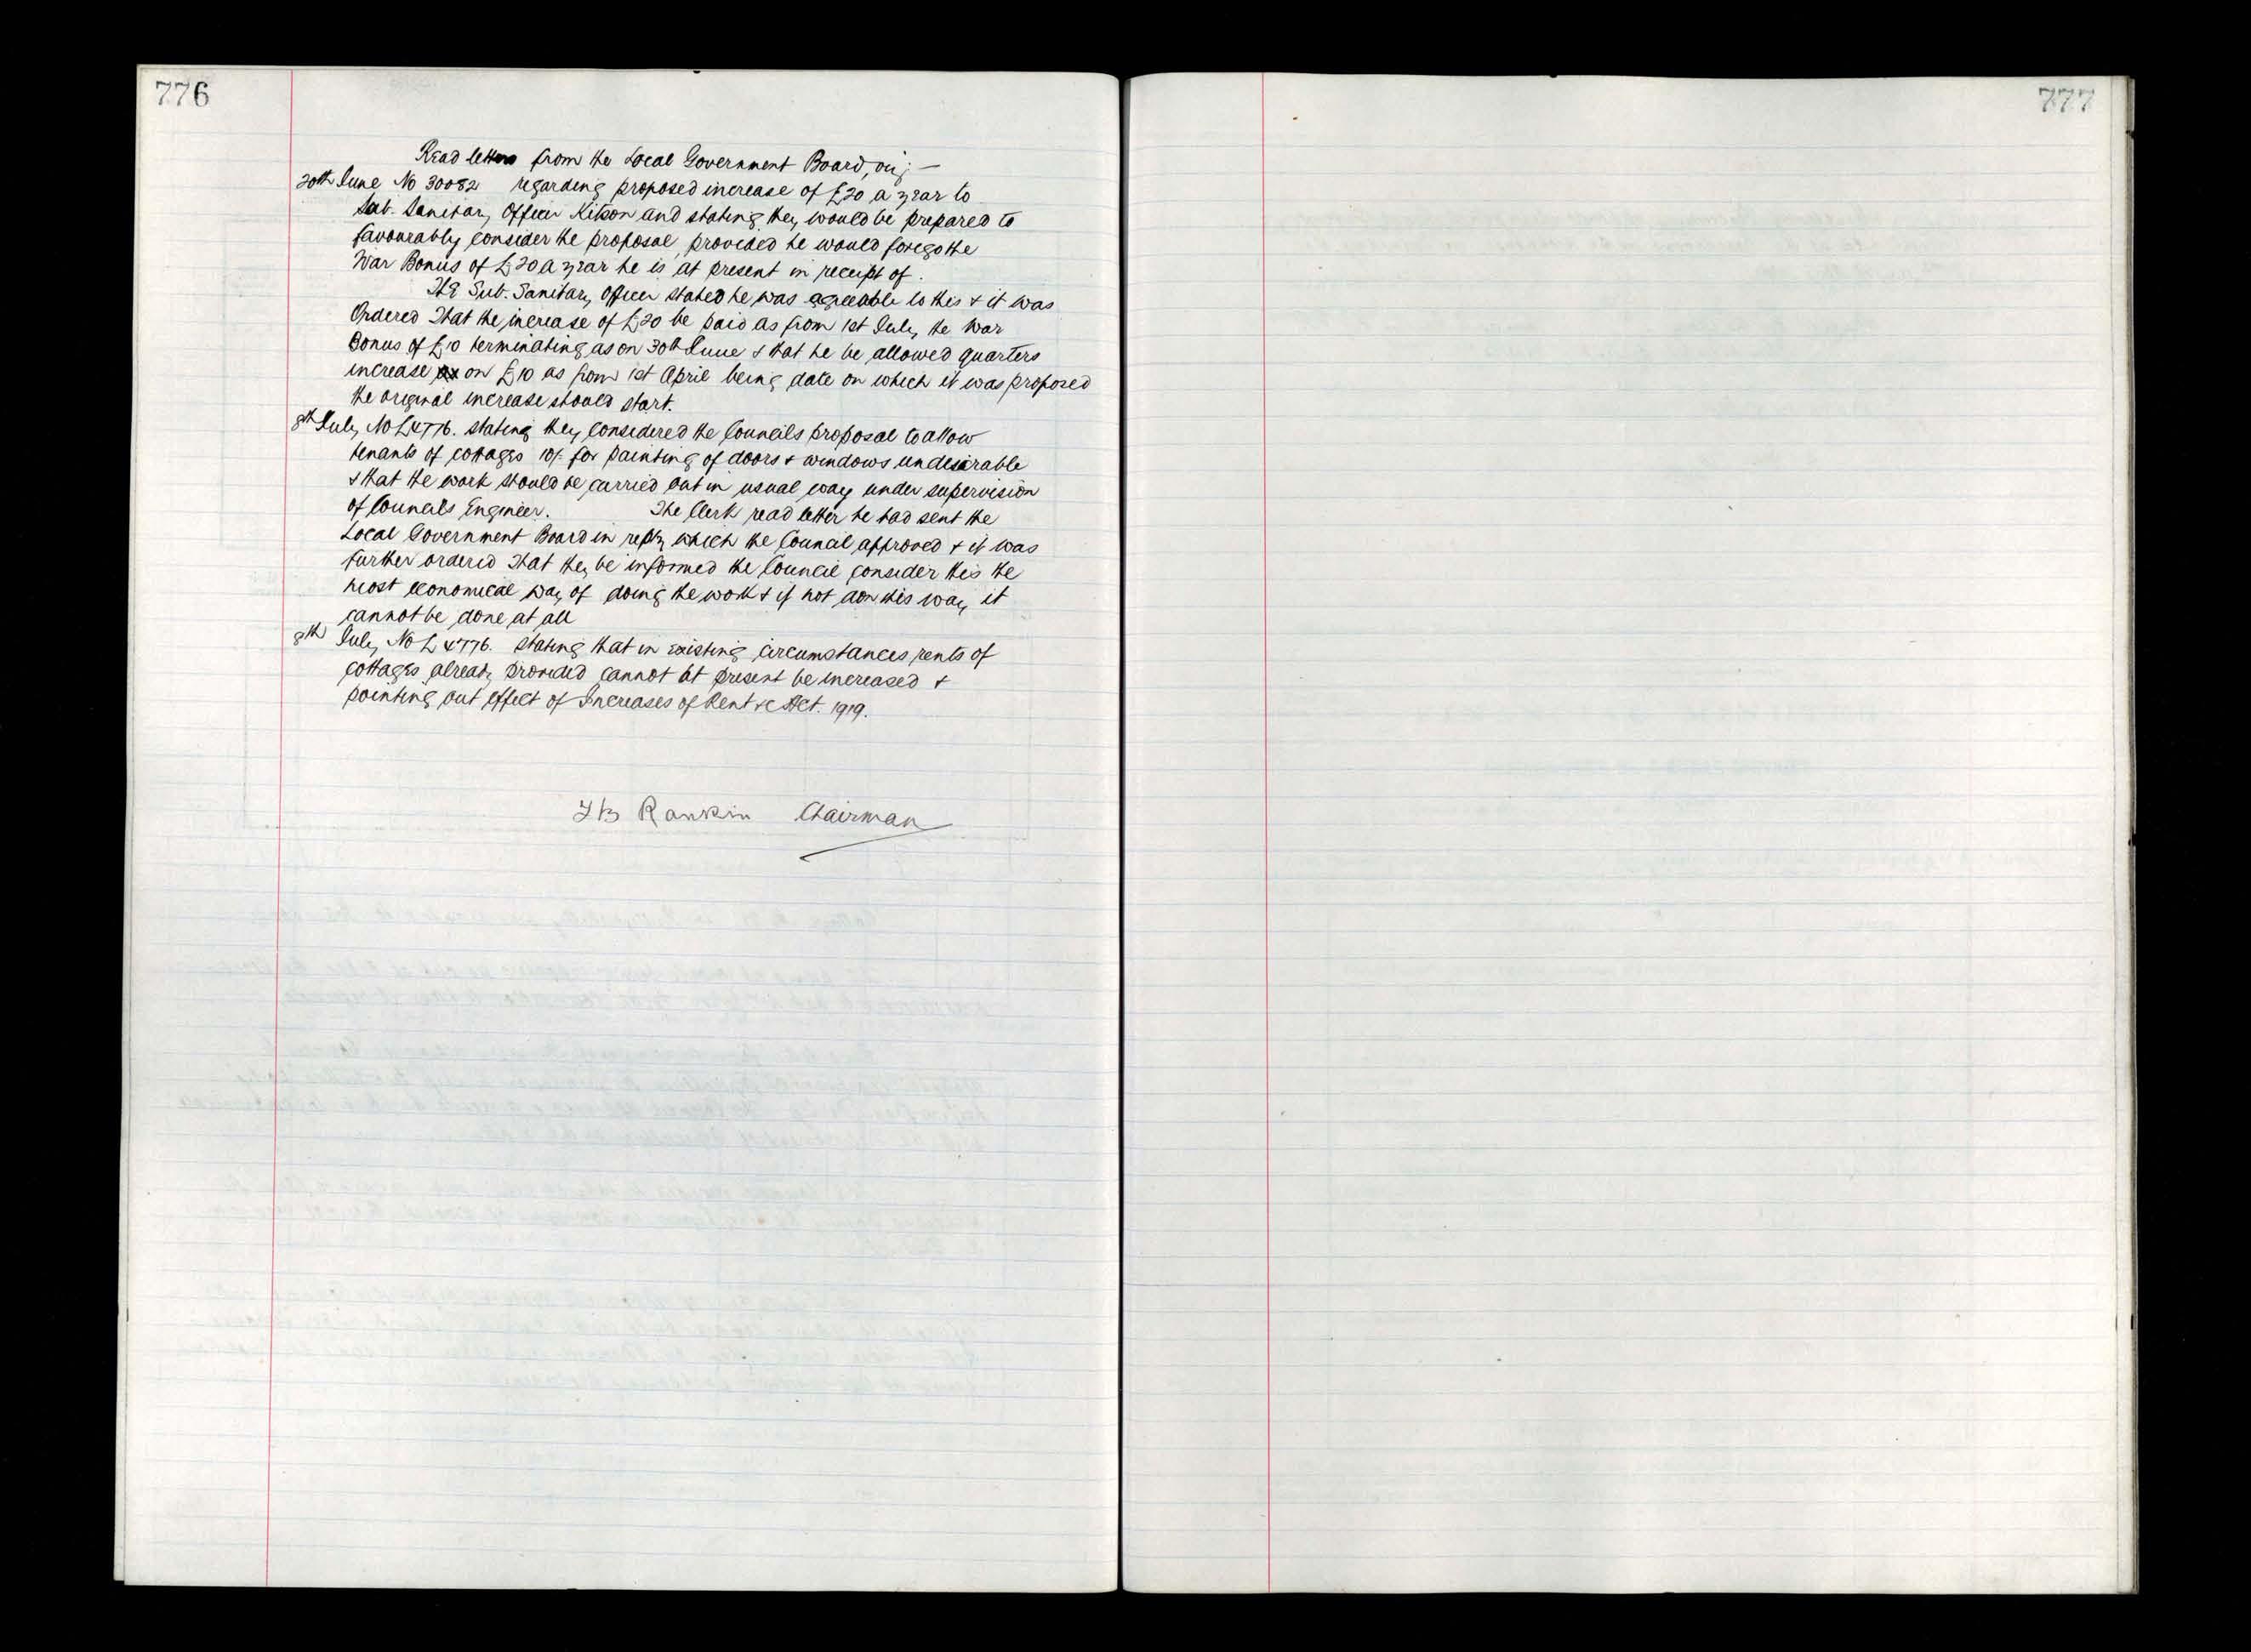 776
777
Read letters from the Local Government Board, viz; —
30th June No 30082 regarding proposed increase of £20 a year to
Sub. Sanitary Officer Kitson and stating they would be prepared to
favourably consider the proposal, provided he would forego the
War Bonus of £20 a year he is at present in receipt of.
The Sub. Sanitary Officer stated he was agreeable to this & it was
Ordered That the increase of £20 be paid as from 1st July, the War
Bonus of £10 terminating as on 30th June & that he be allowed quarters
increase on £10 as from 1st April being date on which it was proposed
the original increase should start.
8th July, No L4776. stating they considered the Councils proposal to allow
tenants of cottages 10/- for painting of doors & windows undesirable
& that the work should be carried out in usual way under supervision
of Councils Engineer. The Clerk read letter he had sent the
Local Government Board in reply which the Council approved & it was
further ordered That they be informed the Council consider this the
most economical way of doing the work & if not don this way it
cannot be done at all
8th July, No L4776. stating that in existing circumstances rents of
cottages already provided cannot at present be increased &
pointing out effect of Increases of Rent &c Act. 1919.
Rankin Chairman